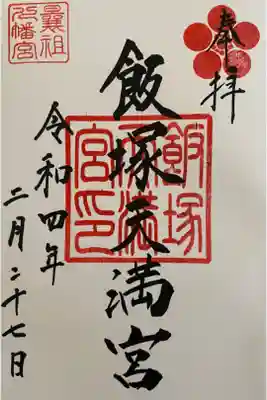 奉拝
飯塚天満宮
飯塚天満宮印
令和四年
二月二十七日
曩祖八幡宮